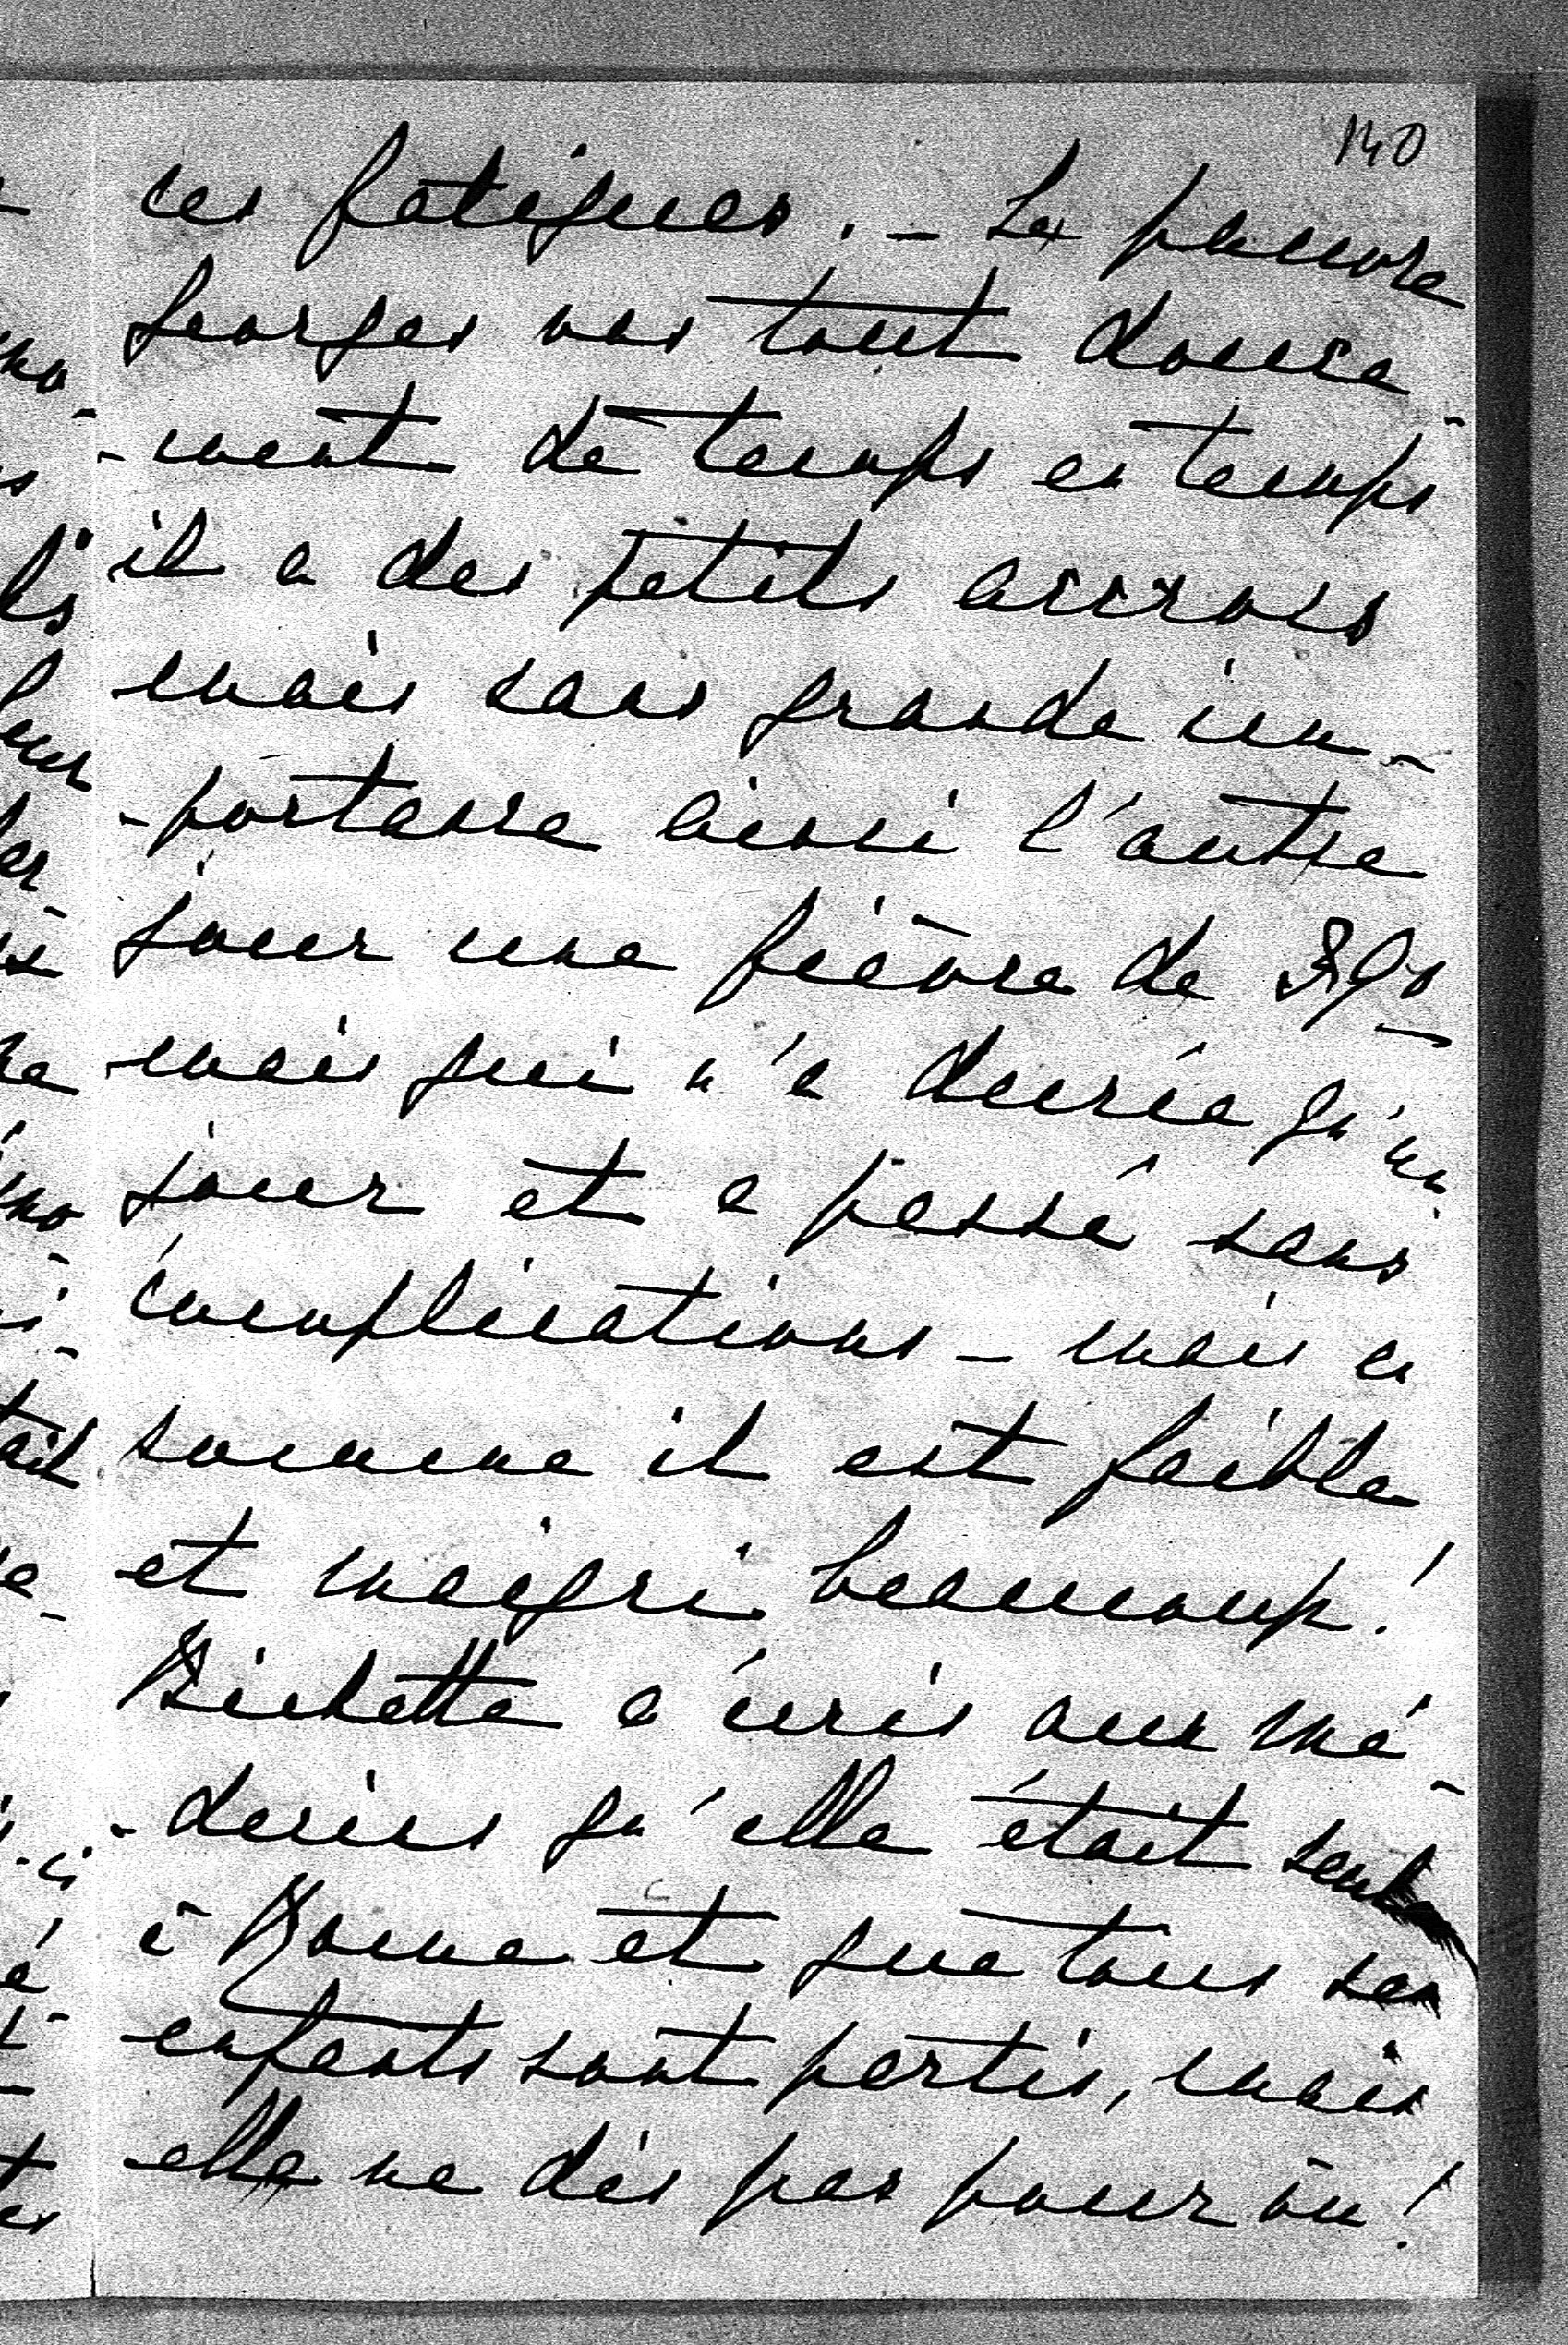 140
ces fatigues. - Le pauvre
Georges vas tout douce-
-ment de temps en temps
il a des petits accrocs
mais sans grande im-
-portance ainsi l'autre
jour une fièvre de 39°
mais qui n'a durée qu'un
jour et a passé sans
complications - mais en
somme il est faible
et maigri beaucoup!
Bichette a écris aux mé-
-decins qu'elle était seule
à Rome et que tous ses
enfants sont partis, mais
elle ne dis pas pour où!